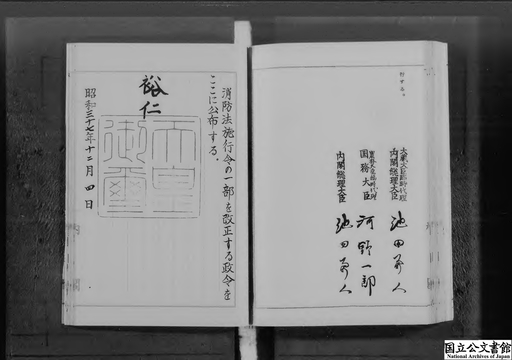 附せよ。
大蔵大臣臨時代理
内閣総理大臣 池田勇人
国務大臣 河野一郎
内閣総理大臣 池田勇人
消防法施行令の一部を改正する政令を
ここに公布する。
裕仁
天皇
御璽
昭和三十七年十二月四日
国立公文書館
National Archives of Japan